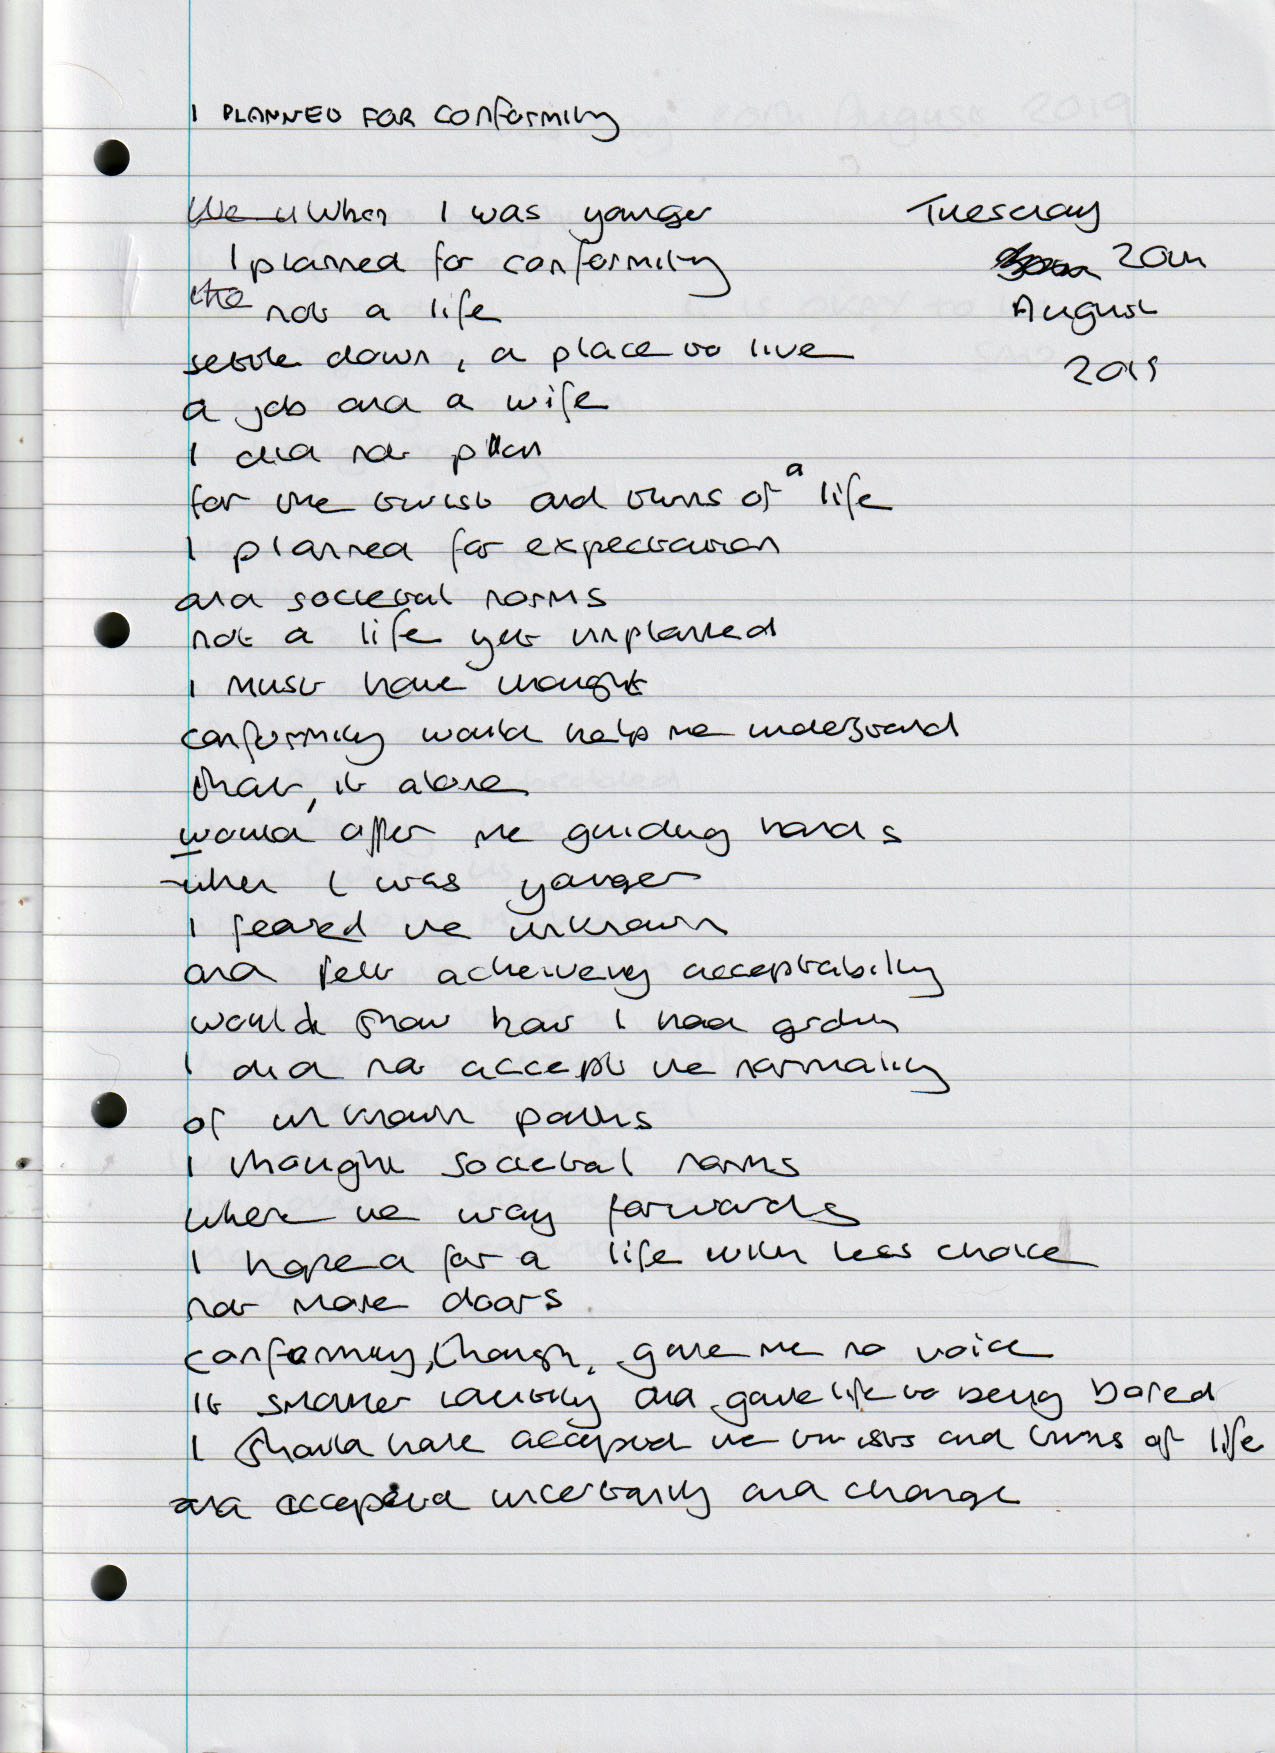 I PLANNED FOR Conformity
We u When I was younger
Tuesday
I planned for conformity
20th
the not a life
August
settle down, a place to live
2019
a job and a wife
I did not plan
for the twist and turns of a life
I planned for expectation
and societal norms
not a life yet unplanned
I must have thought
conformity would help me understand
that, it alone
would offer me guiding hands
when I was younger
I feared the unknown
and felt acheiveing acceptability
would show how I had grown
I did not accept the normality
of unknown paths
I thought societal norms
where the way forwards
I hoped for a life with less choice
not more doors
conformity, though, gave me no voice
it smother and gave life to being bored
I should have accepted the twists and turns of life
and accepted uncertainty and change